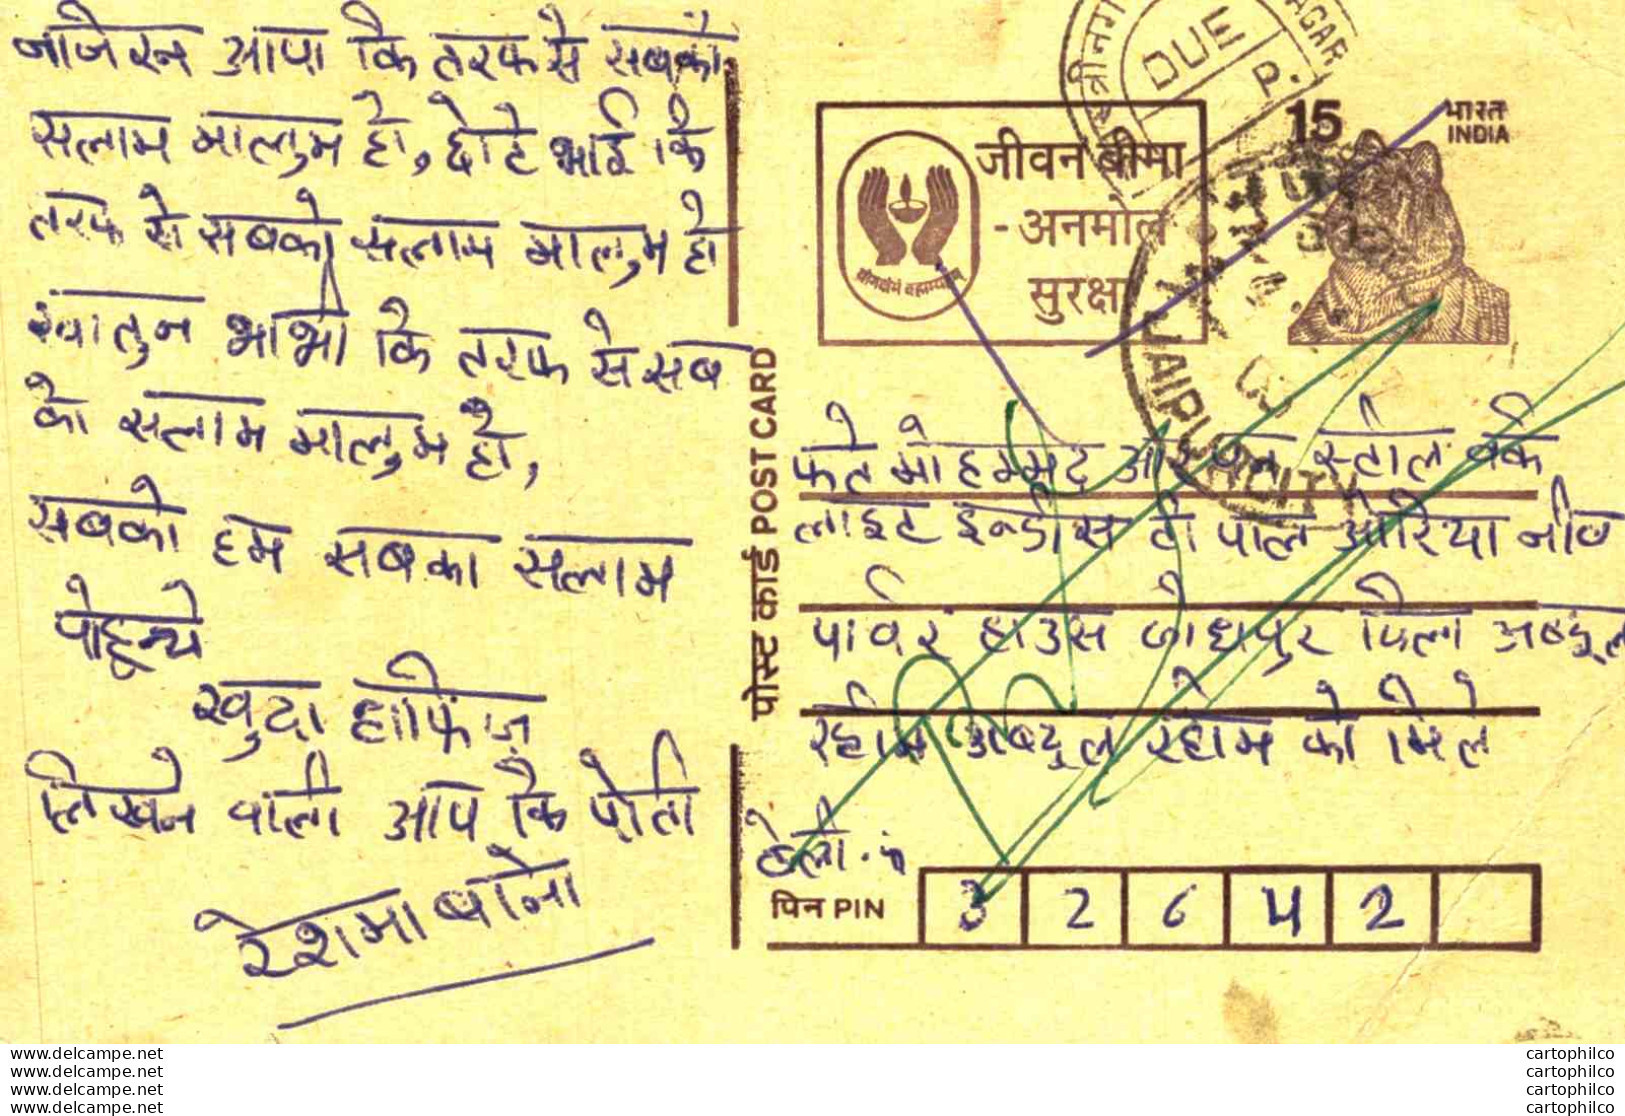 आपा कि तरफ से सबको
सलाम मालुम हो, छोटे भाई कि
तरफ से सबको सलाम मालुम हो
खातुन भाभी कि तरफ से सब
को सलाम मालुम हो,
सबको हम सबका सलाम
पोहून्चे
खुदा हाफिज़
लिखने वाली आप कि पोती
रेशमा बानो
पोस्ट कार्ड POST CARD
जीवन बीमा
- अनमोल
सुरक्षा
DUE
P.
15
भारत
INDIA
JAIPUR CITY
फते मोहम्मद स्टील वर्क
लाइट
पावर हाउस जोधपुर अबदूल
रहीम अबदूल रहीम को मिले
पिन PIN 3 2 6 4 2
www.delcampe.net
www.delcampe.net
www.delcampe.net
www.delcampe.net
cartophilco
cartophilco
cartophilco
cartophilco